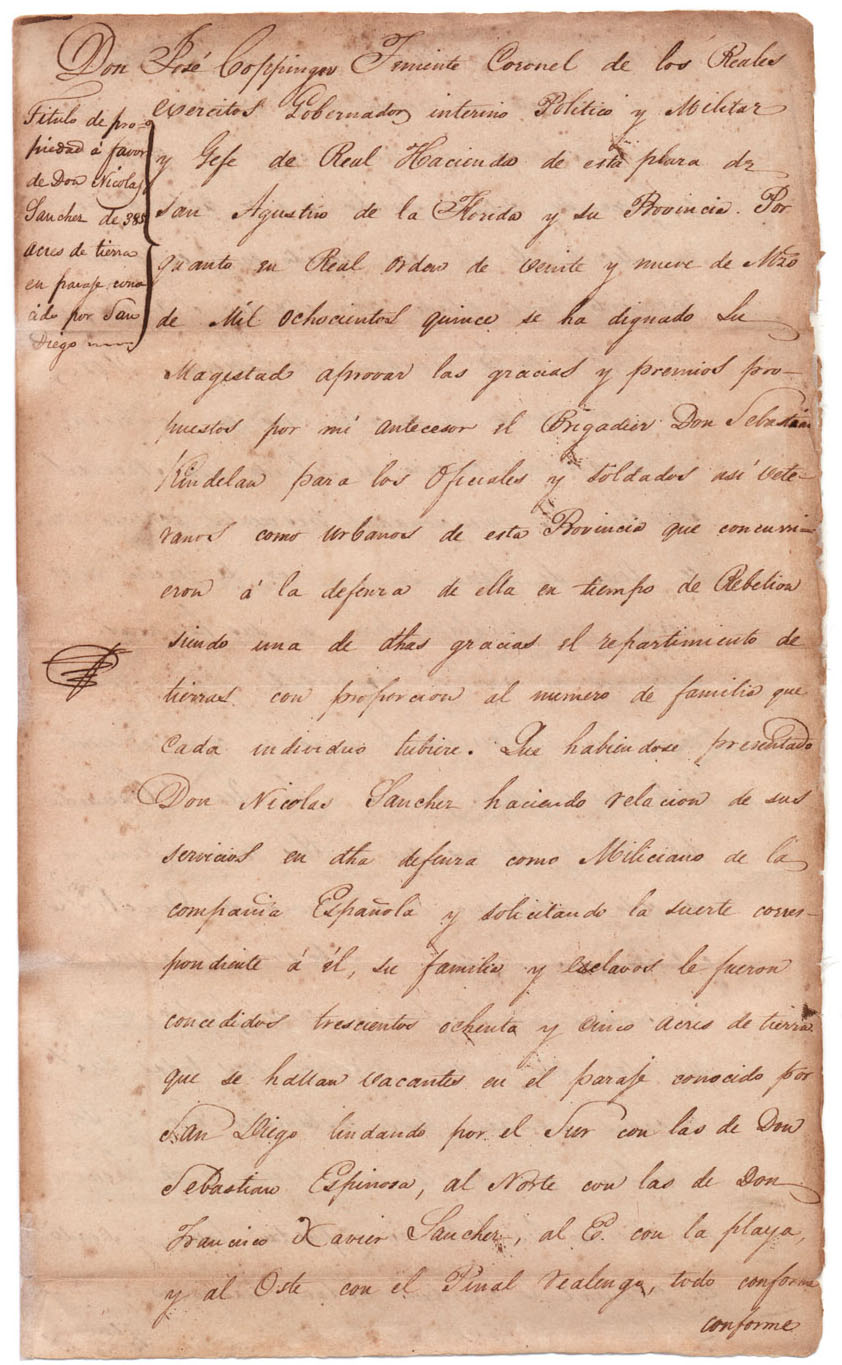 Don José Coppinger Teniente Coronel de los Reales
exercitos Gobernador interino Politico y Militar
y Gefe de Real Hacienda de esta plaza de
san Agustin de la Florida y su Provincia. Por
quanto en Real orden de veinte y nueve de Mzo
de Mil ochocientos quince se ha dignado Su
Magestad aprovar las gracias y premios pro-
puestos por mi antecesor el Brigadier Don Sebastian
Kindelan para los oficiales y soldados así vete-
ranos como urbanos de esta Provincia que concurri-
eron á la defenza de ella en tiempo de Rebelion
siendo una de dhas gracias el repartimiento de
tierras con proporcion al numero de familia que
cada individuo tubiere. Que habiendose presentado
Don Nicolas Sanchez haciendo relacion de sus
servicios en dha defenza como Miliciano de la
compañia Española y solicitando la suerte corres-
pondiente á él, su familia y esclavos le fueron
concedidos trescientos ochenta y cinco acres de tierra
que se hallan vacantes en el paraje conocido por
San Diego lindando por el Sur con las de Don
Sebastian Espinosa, al Norte con las de Don
Francisco Xavier Sanchez, al E. con la playa,
y al Oste con el Pinal realengo, todo conforme
conforme
Titulo de pro-
piedad á favor
de Don Nicolas
Sanchez de 385
acres de tierra
en paraje cono
cido por San
Diego